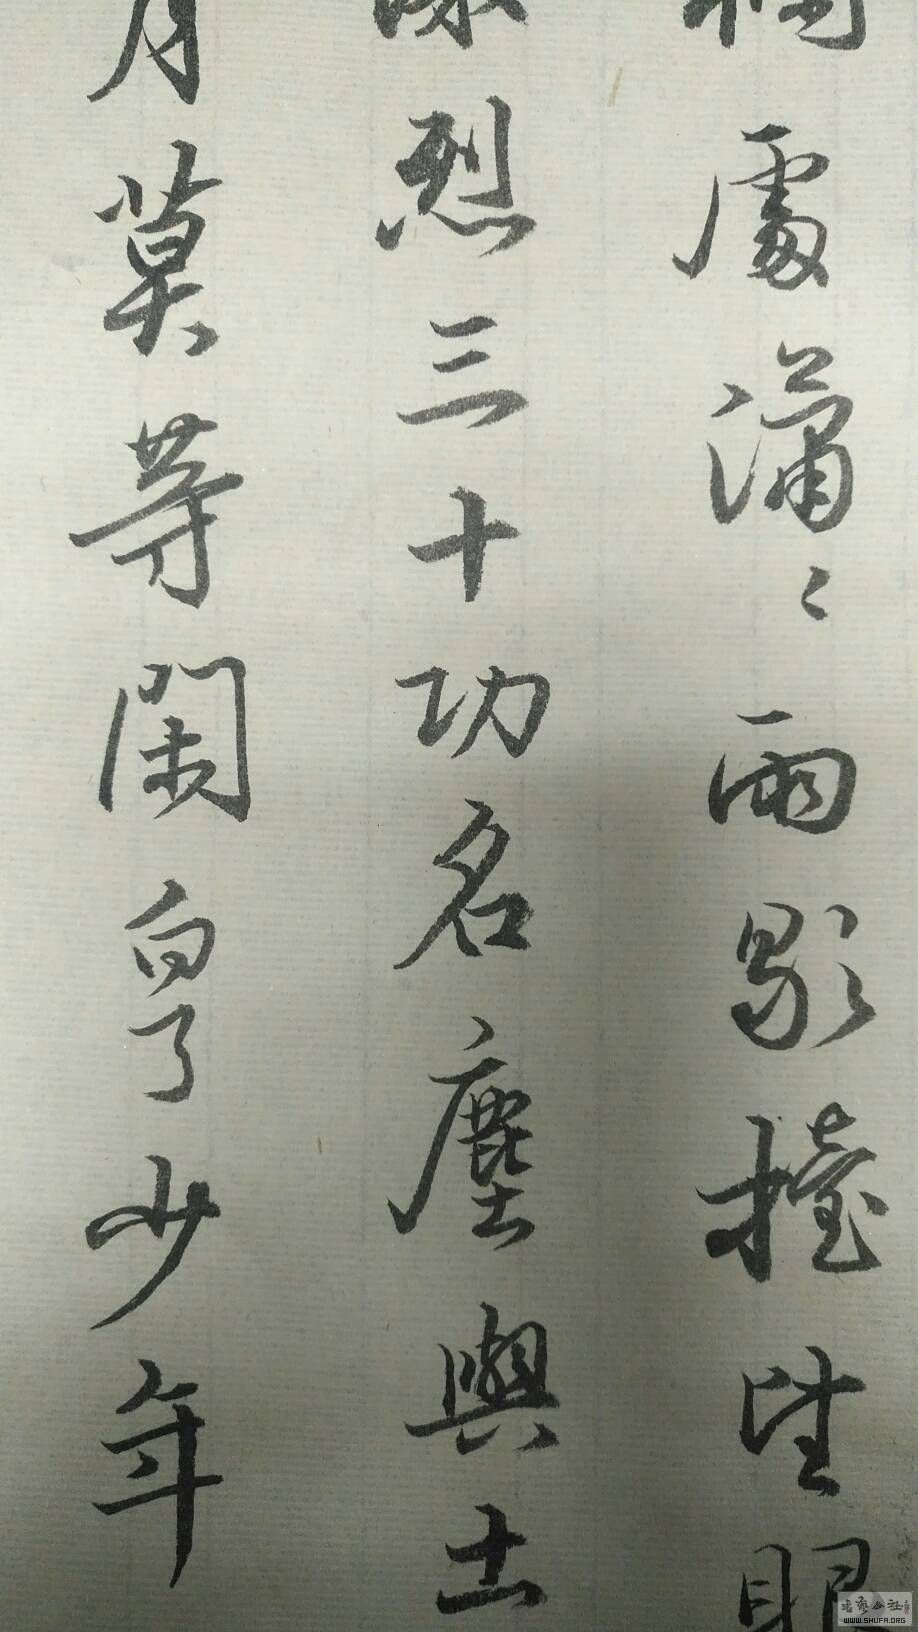 欄處瀟〻雨歇擡望眼
烈三十功名塵與土
月莫等閑白了少年
书艺公社
WWW.SHUFA.ORG